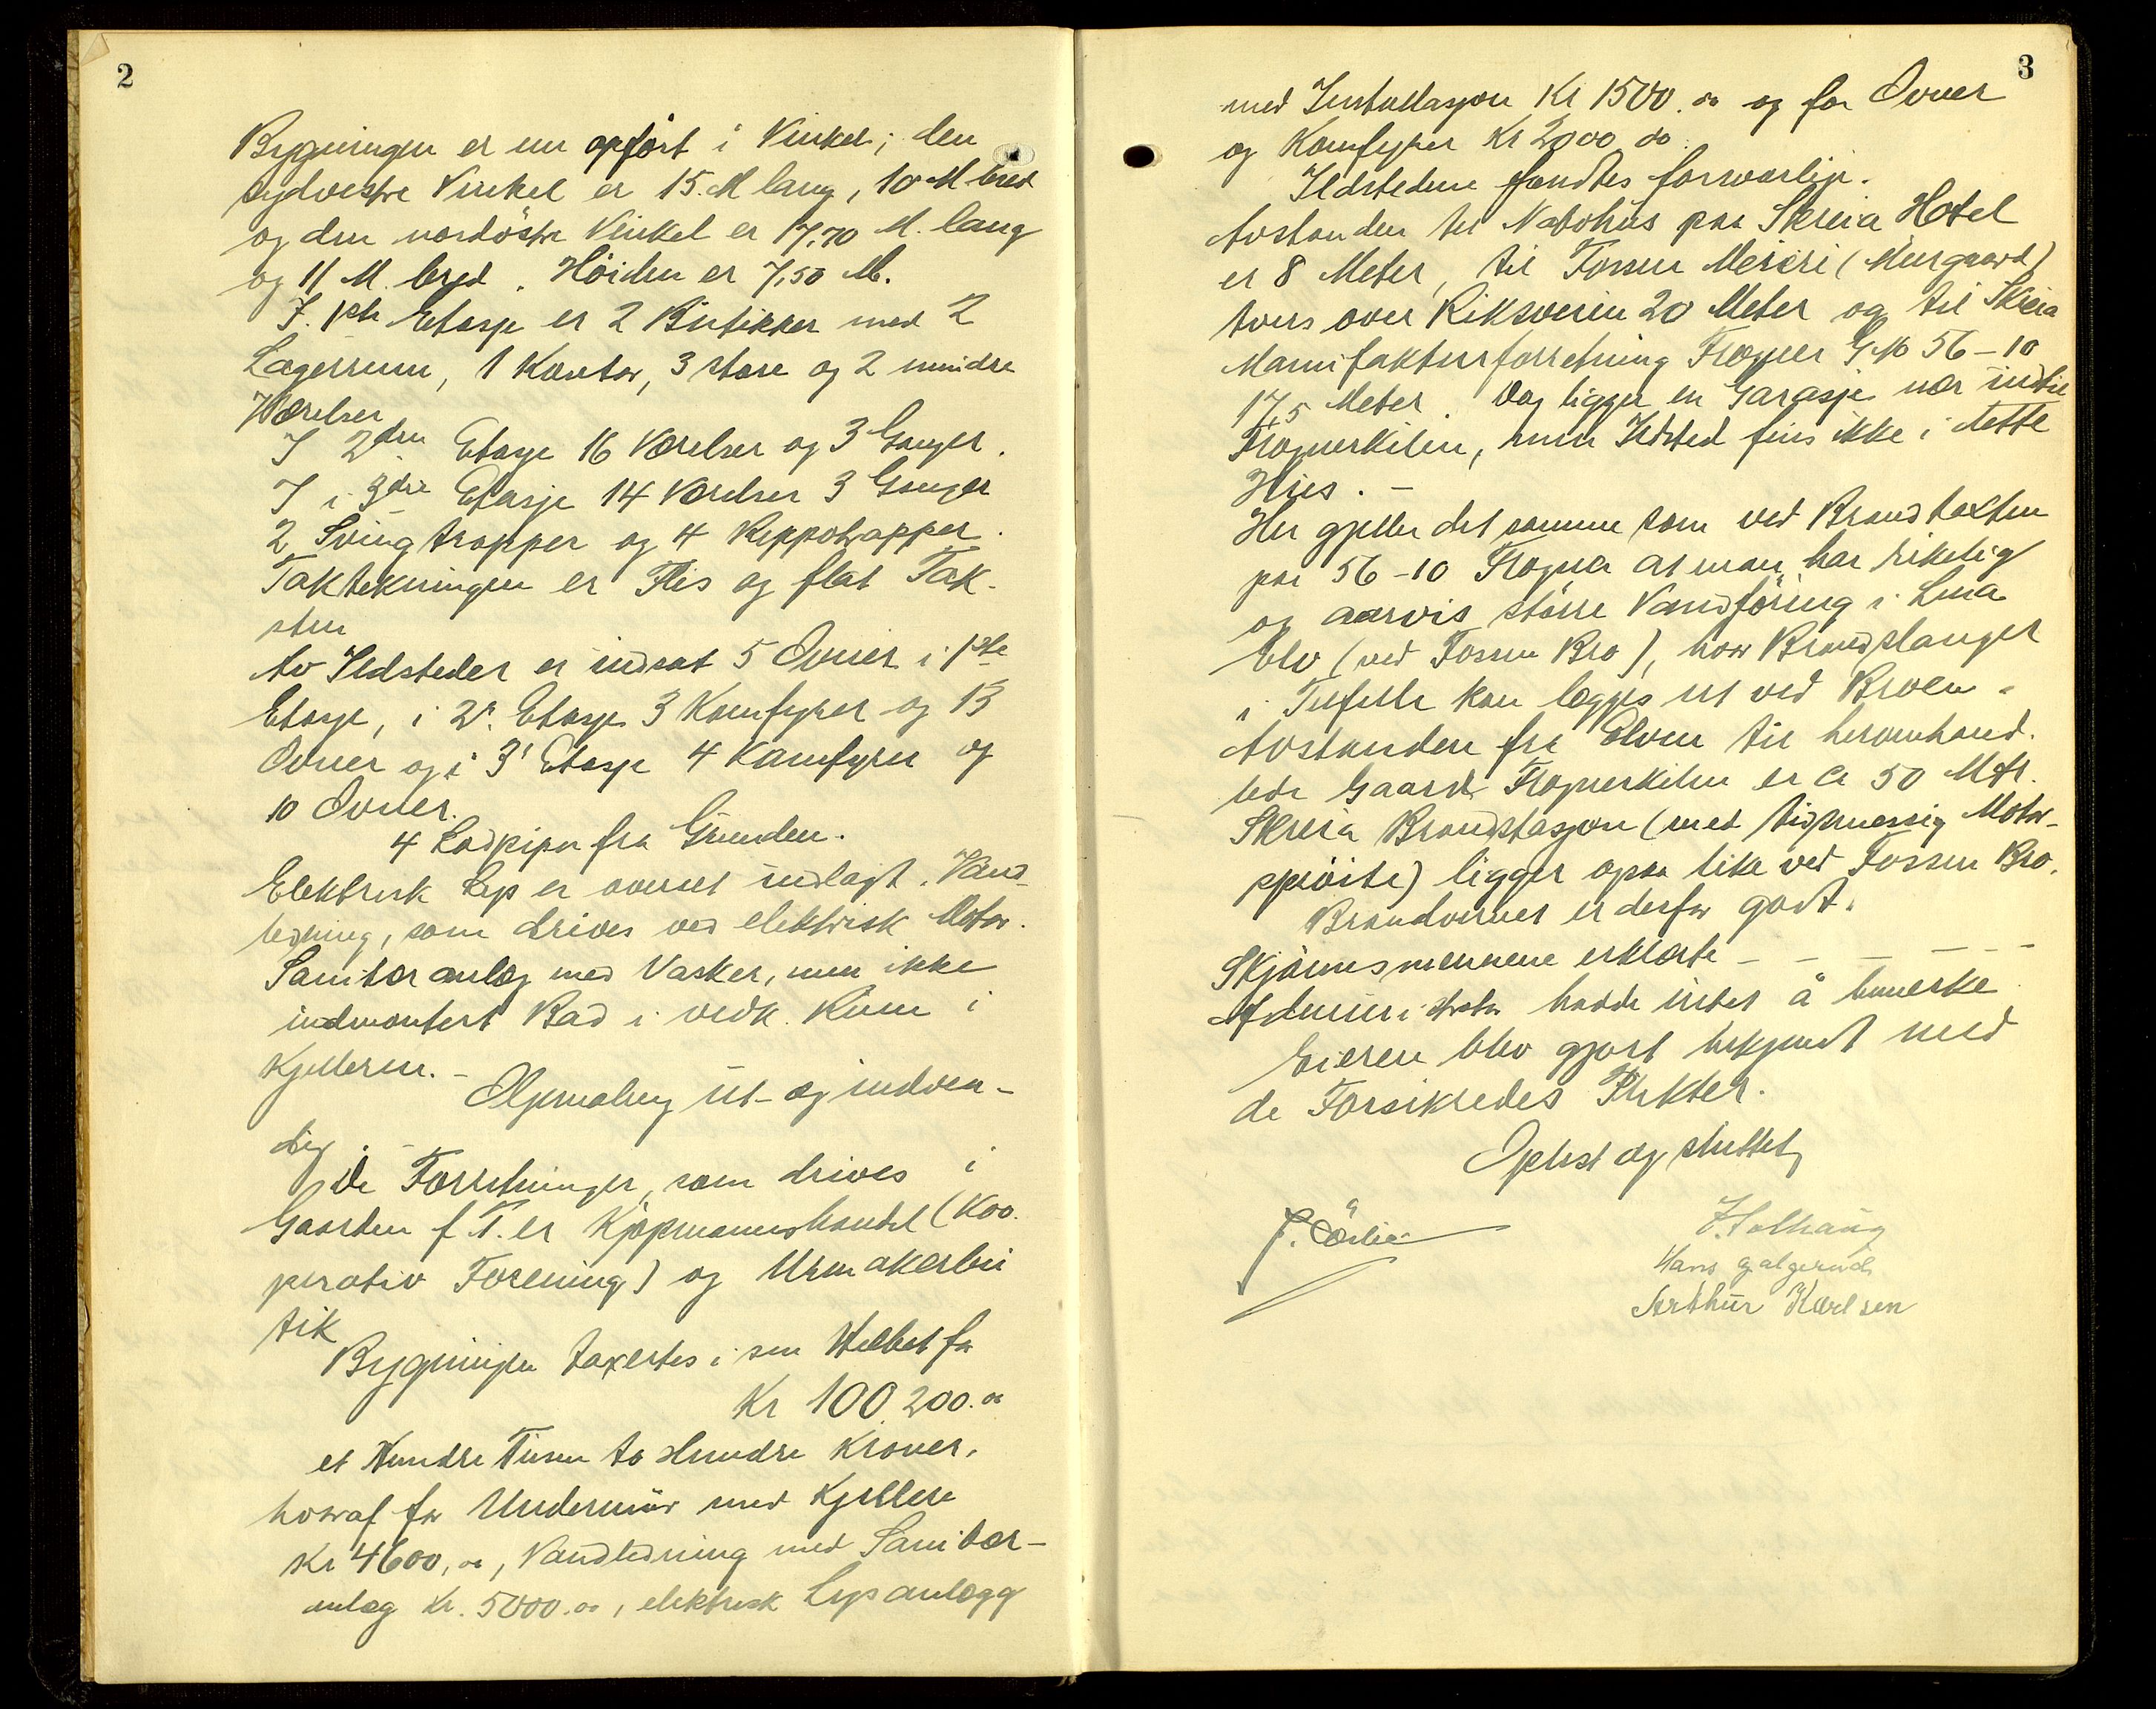 2
Bygningen er nu opført i Vinkel; den
sydvestre Vinkel er 15. M lang, 10 M bred
og den nordöstre Vinkel er 17,70 M. lang
og 11 M. bred. Höiden er 7,50 M.
I. 1ste Etasje er 2 Butikker med 2
Lagerrum, 1 Kontor, 3 store og 2 mindre
Værelser
I 2den Etasje 16 Værelser og 3 Ganger.
I i 3dje Etasje 14 Værelser 3 Ganger
2 Svingtrapper og 4 Reppotrapper.
Taktekningen er Flis og flat Tak-
sten
Av Ildsteder er indsat 5 Ovner i 1ste
Etasje, i 2. Etasje 3 Komfyrer og 13
Ovner og i 3' Etasje 4 Komfyrer og
10 Ovner.
4 Lodpiper fra Grunden.
Elektrisk Lys er overalt indlagt. Vand-
ledning, som drives ved elektrisk Motor.
Sanitæranlæg med Vasker, men ikke
indmontert Bad i vedk. Rum i
Kjelleren. -
Oljemaling ut- og indven-
dig.
De Forretninger, som drives i
Gaarden f T. er Kjøpmannshandel (Koo-
perativ Forening) og Urmakerbu
tik
Bygningen taxertes i sin Helhet for
Kr 100.200.00
et Hundre Tusen to Hundre Kroner.
hvoraf for Undermur med Kjellere
Kr 4600,00, Vandledning med Sanitær-
anlæg Kr. 5000.00, elektrisk Lysanlægg
3
med Installasjon Kr 1500.00 og for Ovner
og Komfyrer Kr 2000 00.
Ildstedene fandtes forsvarlige.
Avstanden til Nabohus paa Skreia Hotel
er 8 Meter, til Fossen Meieri (Murgaard)
tvers over Riksveien 20 Meter og til Skreia
Manufakturforretning Frogner G No 56-10
17,5 Meter. Dog ligger en Garasje nær indtil
Frognerkilen, men Ildsted fins ikke i dette
Hus. -
Her gjeller det samme som ved Brandtaksten
paa 56-10 Frogner at man har rikelig
og aarvis större Vandföring i Lena
Elv (ved Fossen Bro), hvor Brandslanger
i Tilfelle kan lægges ut ved Broen.
Avstanden fra Elven til heromhand-
lede Gaard Frognerkilen er ca 50 Mtr.
Skreia Brandstasjon (med tidsmessig Motor-
spröite) ligger ogsaa like ved Fossen Bro.
Brandvernet er derfor godt.
Skjönnsmennene erklærte - - - - -
Administrator hadde intet å bemerke
Eieren blev gjort bekjendt med
de Forsikredes Plikter.
Oplest og sluttet
J. Solhaug
Hans Galgerud
Arthur Karlsen